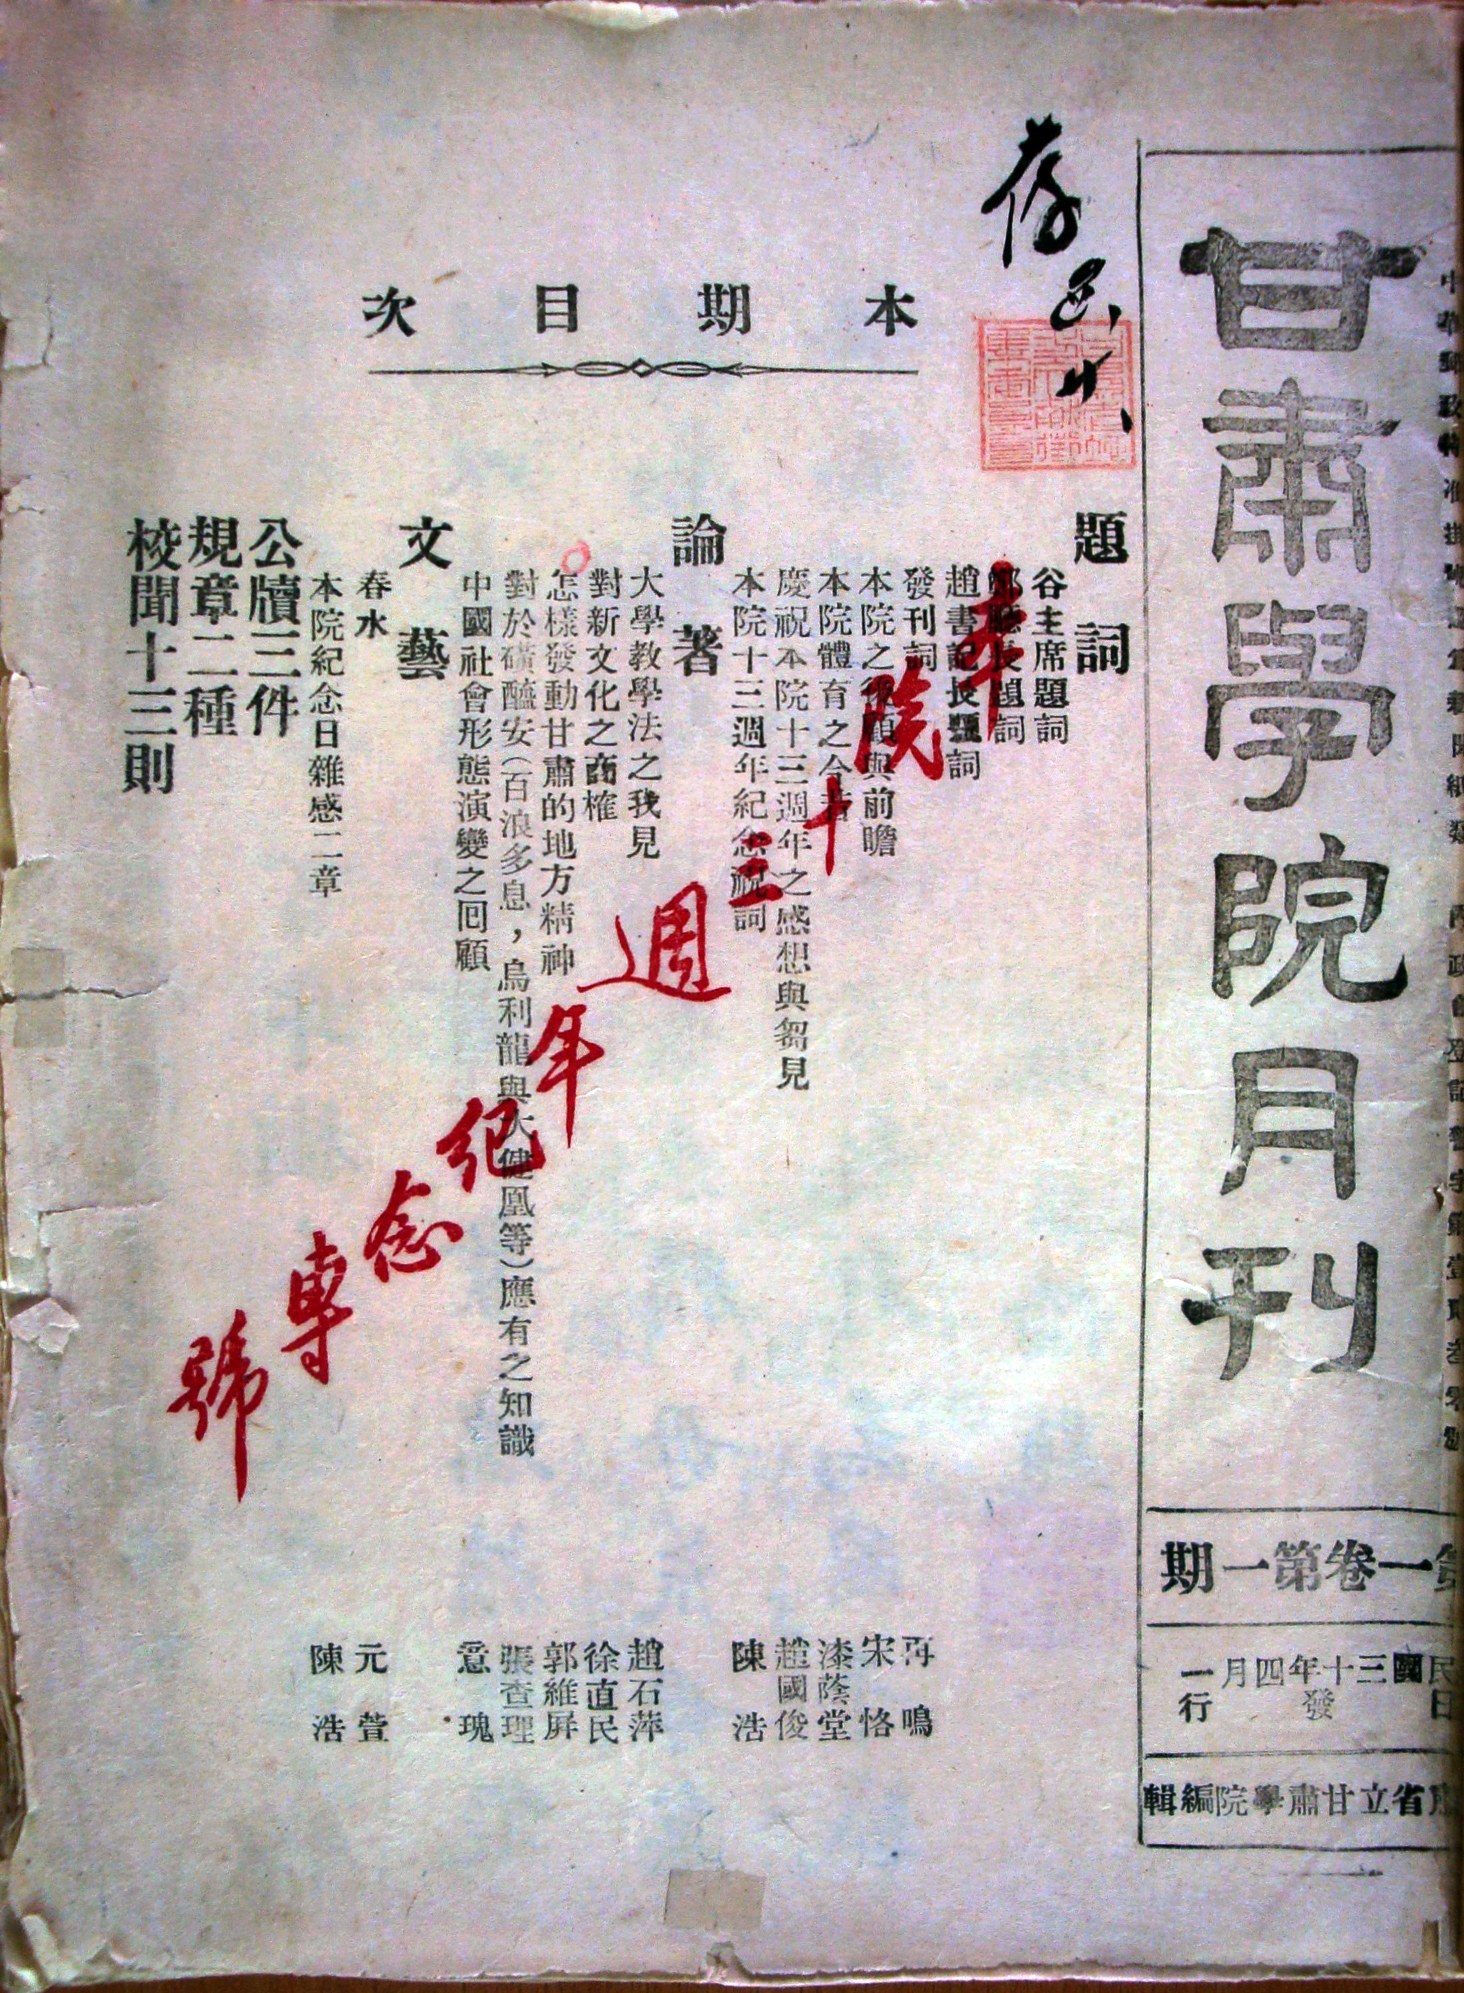 甘肅學院月刊
第一卷第一期
民國三十年四月一日發行
肅省立甘肅學院編輯
本期目次
題詞
谷主席題詞
鄭廳長題詞
趙書記長題詞
發刊詞 再鳴
本院之後顧與前瞻 宋恪
本院體育之今昔 漆蔭堂
慶祝本院十三週年之感想與芻見 趙國俊
本院十三週年紀念祝詞 陳浩
論著
大學教學法之我見 趙石萍
對新文化之商榷 徐直民
怎樣發動甘肅的地方精神 郭維屏
對於磺醯安(百浪多息，烏利龍與大健凰等)應有之知識 張查理
中國社會形態演變之回顧 意瑰
文藝
春水 元萱
本院紀念日雜感二章 陳浩
公牘三件
規章二種
校聞十三則
本院十三週年紀念專號